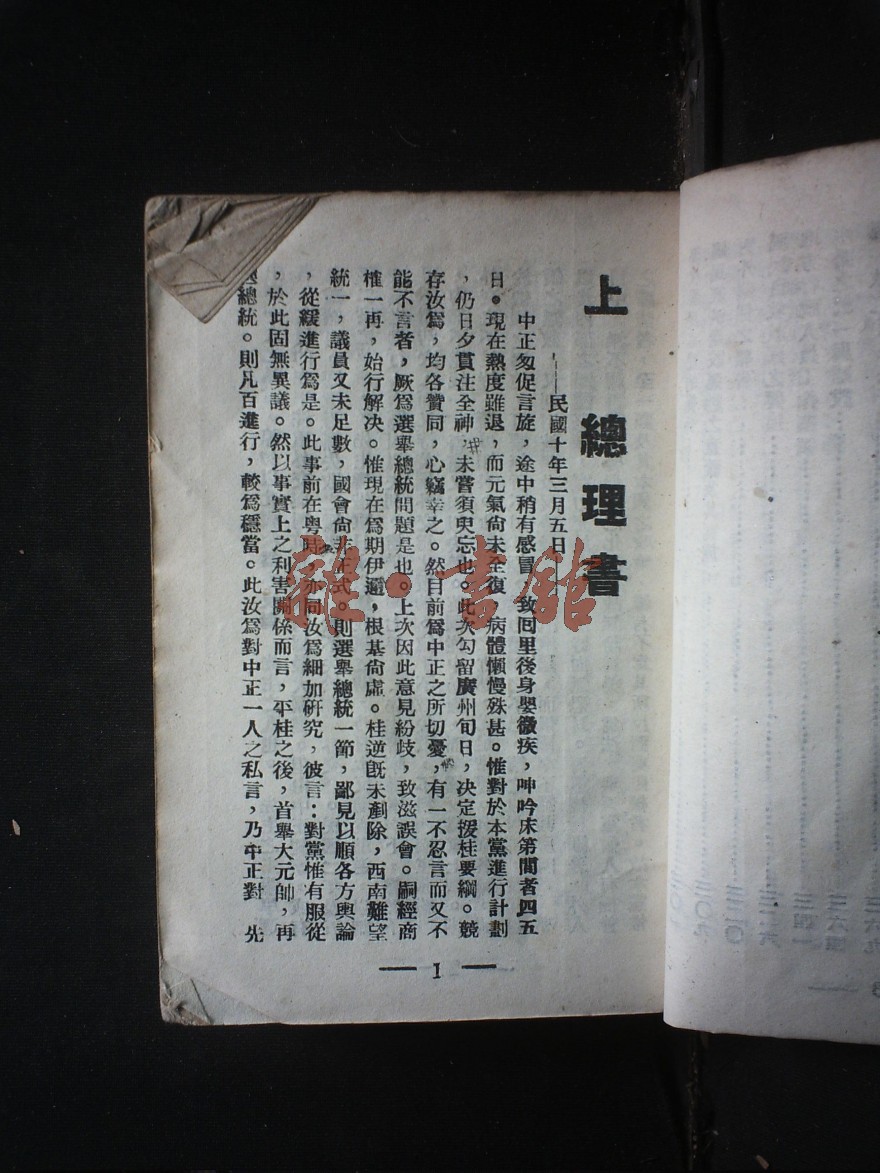 上總理書
——民國十年三月五日
中正匆促言旋，途中稍有感冒，致囘里後身嬰微疾，呻吟床第間者四五
日。現在熱度雖退，而元氣尙未全復，病體懶慢殊甚。惟對於本黨進行計劃
，仍日夕貫注全神，未嘗須臾忘也。此次勾留廣州旬日，決定援桂要綱。競
存汝爲，均各贊同，心竊幸之。然目前爲中正之所切憂，有一不忍言而又不
能不言者，厥爲選舉總統問題是也。上次因此意見紛歧，致滋誤會。嗣經商
榷一再，始行解决。惟現在爲期伊邇，根基尙虛。桂逆旣未剷除，西南難望
統一，議員又未足數，國會尙非正式。則選舉總統一節，鄙見以順各方輿論
，從緩進行爲是。此事前在粵時，亦同汝爲細加硏究，彼言：對黨惟有服從
，於此固無異議。然以事實上之利害關係而言，平桂之後，首舉大元帥，再
選總統。則凡百進行，較爲穩當。此汝爲對中正一人之私言，乃中正對　先
— 1 —
雜·書館
三六九
三六四
三四一
三二六
三二〇
三〇九